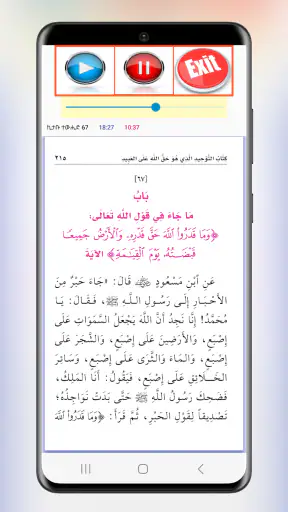 Exit
ኪታቡ ተውሒድ 67 18:27 10:37
كِتَابُ التَّوْحِيدِ الَّذِي هُوَ حَقُّ اللهِ عَلَى العَبِيدِ ٢١٥
[٦٧]
بَابُ
مَا جَاءَ فِي قَوْلِ اللَّهِ تَعَالَى:
﴿وَمَا قَدَرُوا۟ ٱللَّهَ حَقَّ قَدْرِهِۦ وَٱلْأَرْضُ جَمِيعًا
قَبْضَتُهُۥ يَوْمَ ٱلْقِيَـٰمَةِ﴾ الآيَةَ
عَنِ ابْنِ مَسْعُودٍ ﷺ قَالَ: «جَاءَ حَبْرٌ مِنَ
الأَحْبَارِ إِلَى رَسُولِ اللَّهِ ﷺ، فَقَالَ: يَا
مُحَمَّدُ! إِنَّا نَجِدُ أَنَّ اللَّهَ يَجْعَلُ السَّمَوَاتِ عَلَى
إِصْبَعٍ، وَالأَرَضِينَ عَلَى إِصْبَعٍ، وَالشَّجَرَ عَلَى
إِصْبَعٍ، وَالمَاءَ وَالثَّرَى عَلَى إِصْبَعٍ، وَسَائِرَ
الخَلَائِقِ عَلَى إِصْبَعٍ، فَيَقُولُ: أَنَا المَلِكُ،
فَضَحِكَ رَسُولُ اللَّهِ ﷺ حَتَّى بَدَتْ نَوَاجِذُهُ؛
تَصْدِيقاً لِقَوْلِ الحَبْرِ، ثُمَّ قَرَأَ: ﴿وَمَا قَدَرُوا۟ ٱللَّهَ